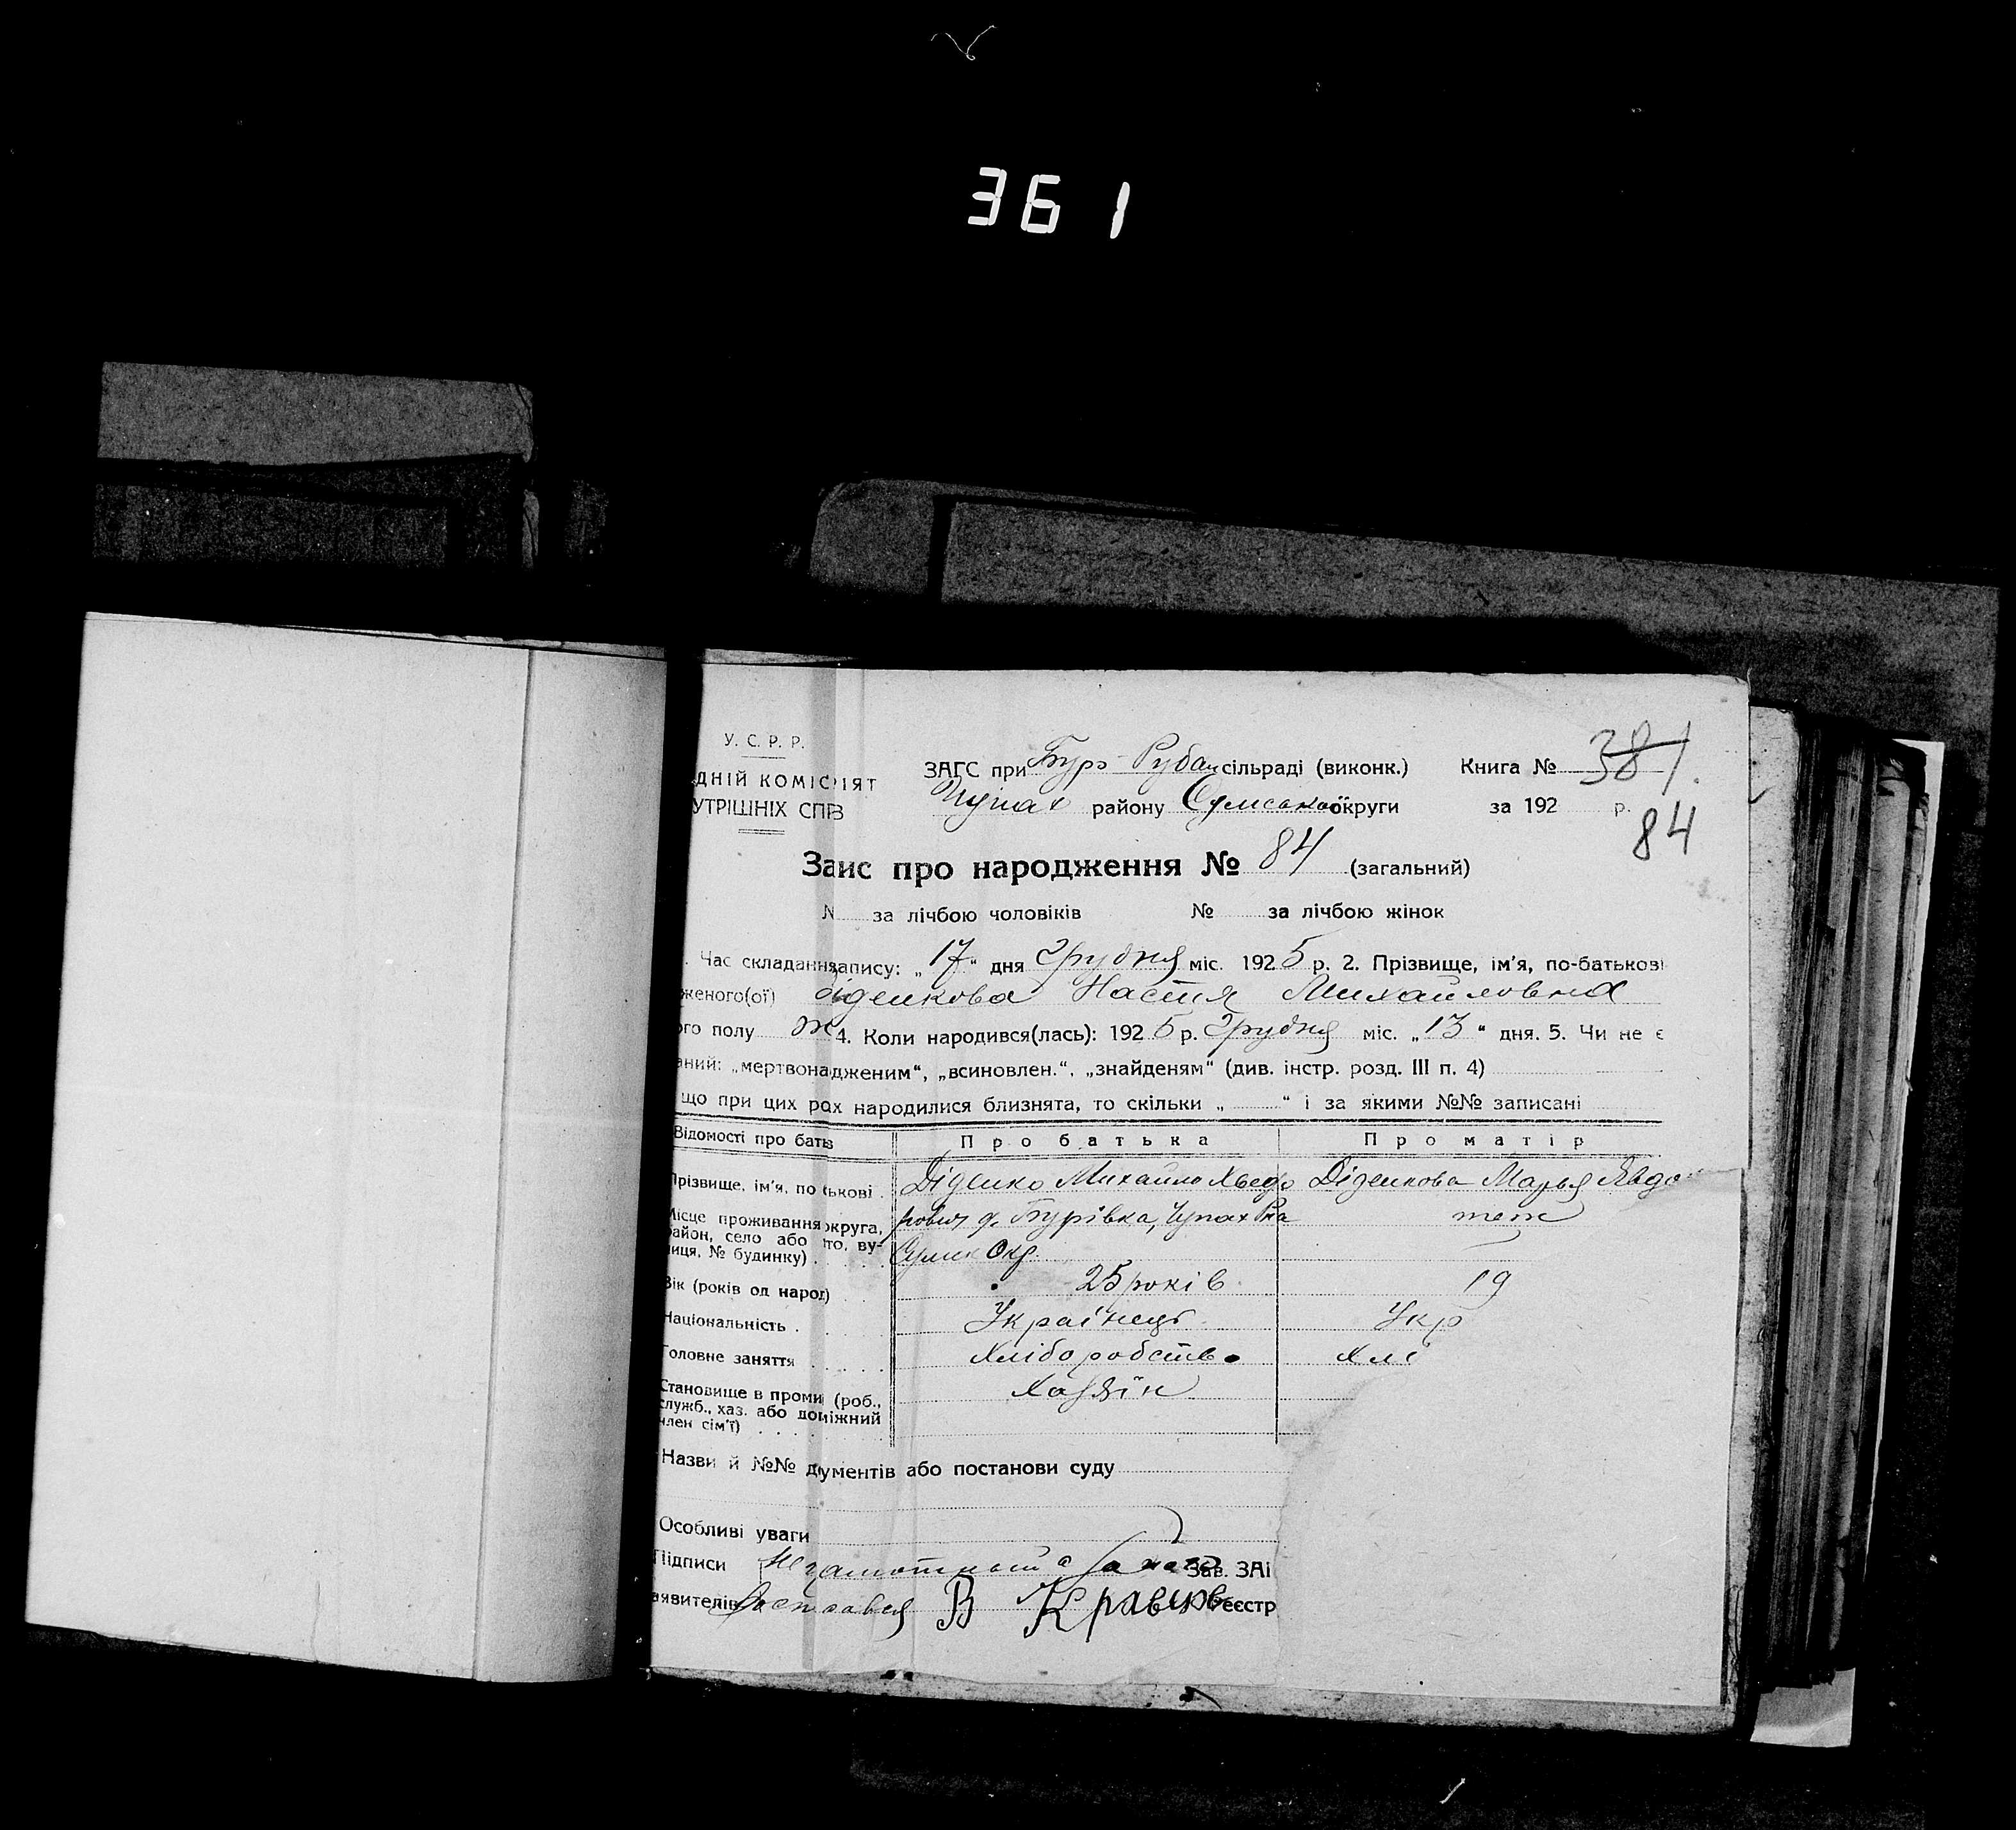 361
У. С. Р. Р.
ДНІЙ КОМІС ІЯТ
УТРІШНІХ СПР
ЗАГС при Буро Рубан сільраді (виконк.) Книга № 381
Чупах району Сумської округи за 192 р.
84
За ис про народження № 84 (загальний)
№ за лічбою чоловіків № за лічбою жінок
. Час складання запису: „17“ дня Грудня міс. 1925 р. 2. Прізвище, ім'я, по-батькові
женого(ої) Діденкова Настя Михайловна
ого полу ж 4. Коли народився(лась): 1925 р. Грудня міс. „13“ дня. 5. Чи не є
аний: „мертвона дженим“, „всиновлен.“, „знайденям“ (див. інстр. розд. III п. 4)
що при цих ро х народилися близнята, то скільки „ “ і за якими №№ записані
Відомості про бать Про батька Про матір
Прізвище, ім'я, по ькові . Діденко Михайло Хведо Діденкова Марья Явдо
Місце проживання округа, рович Бурівка, Чупах Рна теж
район, село або то, ву- Сумск Окр.
лиця, № будинку) . . . .
Вік (років од народ) . . 25 років 19
Національність . . . . Українець Укр
Головне заняття . . . . . Хліборобство Хлі
Становище в проми (роб., Хазяїн
служб., хаз. або до міжний
член сім'ї) . . . . . .
Назви й №№ д ументів або постанови суду
Особливі уваги
Підписи Неграмотный а за него Зав. ЗАГ
аявителів Росписався В Кравцов еєстр